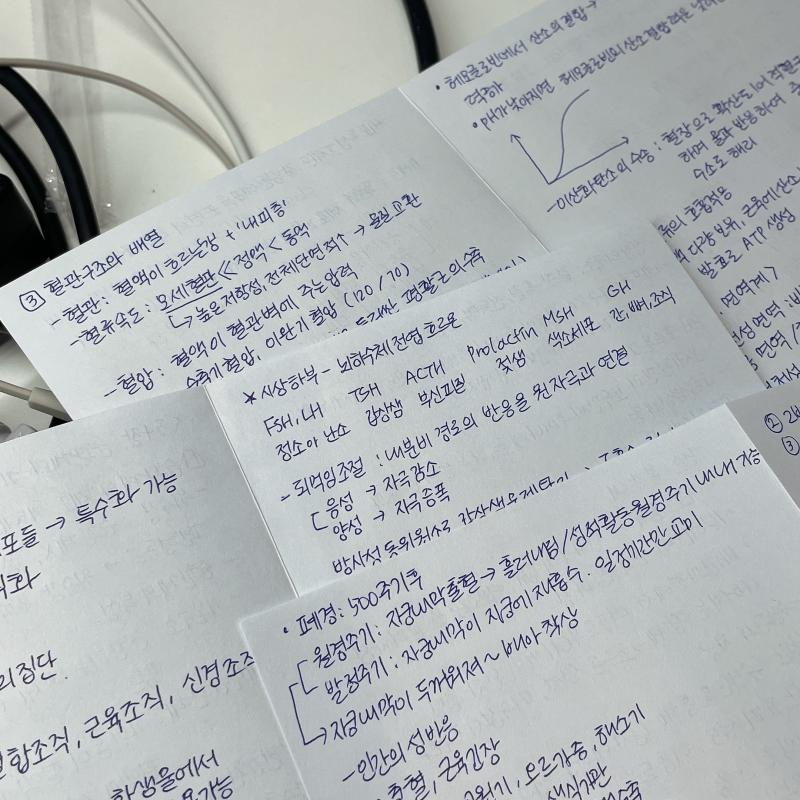 • 헤모글로빈에서 산소의 결합 →
• pH가 낮아지면 헤모글로빈의 산소결합력은 낮아
- 이산화탄소의 수송 : 혈장으로 확산되어 적혈구
하며 물과 반응하여
수소로 해리
호흡적응
다량 보유, 근육에 산소
발효로 ATP 생성
면역계>
③ 혈관구조와 배열
- 혈관 : 혈액이 흐르는 강 + '내피층'
- 혈류속도 : 모세혈관 << 정맥 < 동맥
↳ 높은 저항성, 전체 단면적↑ → 물질교환
- 혈압 : 혈액이 혈관벽에 주는 압력
수축기혈압, 이완기혈압 (120/70)
평활근의 수축
* 시상하부 - 뇌하수체 전엽 호르몬
FSH, LH TSH ACTH Prolactin MSH GH
정소와 난소 갑상샘 부신피질 젖샘 색소세포 간, 뼈, 조직
- 되먹임조절 : 내분비 경로의 반응을 원자극과 연결
음성 → 자극감소
양성 → 자극증폭
방사성 동위원소로
포들 → 특수화 가능
의 집단
결합조직, 근육조직, 신경조직
• 폐경 : 500주기 후
월경주기 : 자궁내막 출혈 → 흘러내림/성적활동 월경주기 내내 가능
발정주기 : 자궁내막이 자궁에 재흡수. 일정기간만 교미
→ 자궁내막이 두꺼워져 ~ 배아 착상
- 인간의 성반응
충혈, 근육긴장
고원기, 오르가슴, 해소기
생식기관
②
③